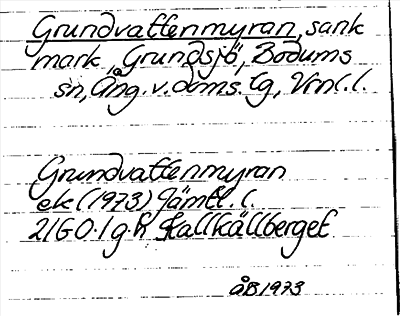 Grundvattenmyran, sank
mark, Grundsjö, Bodums
sn, Ång. v. doms. lg, Vrnl. l.
Grundvattenmyran
ek (1973) Jämtl. l.
21G 0-1 g-h Skallkällberget
åB 1973